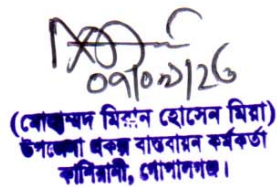 ০৭/০৯/২৫
(মোহাম্মদ মিরান হোসেন মিয়া)
উপজেলা প্রকল্প বাস্তবায়ন কর্মকর্তা
কাশিয়ানী, গোপালগঞ্জ।